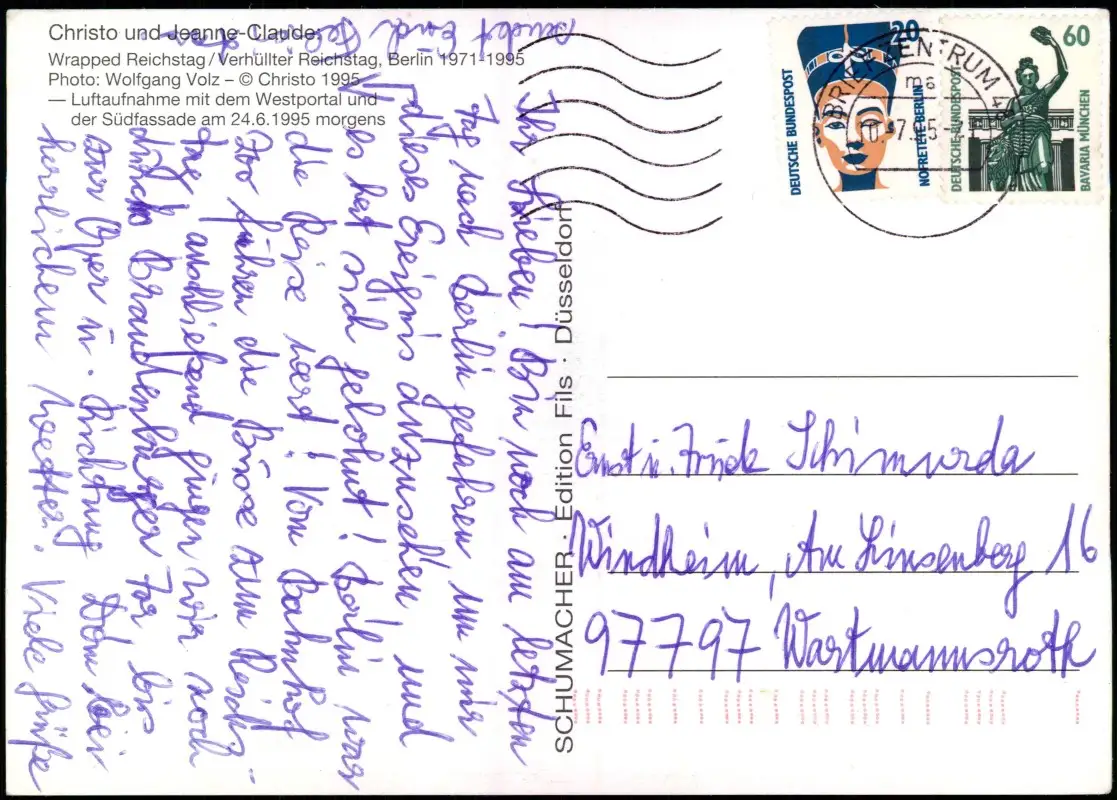 Christo und Jeanne-Claude:
Wrapped Reichstag/Verhüllter Reichstag, Berlin 1971-1995
Photo: Wolfgang Volz – © Christo 1995
— Luftaufnahme mit dem Westportal und
der Südfassade am 24.6.1995 morgens
Ihr Lieben! Bin noch am letzten
Tag nach Berlin gefahren, um mir
dieses Ereignis anzusehen und
es hat sich gelohnt! Berlin war
die Reise wert! Vom Bahnhof
Zoo fuhren die Busse zum Reichs-
tag anschließend gingen wir noch
durchs Brandenburger Tor, bis
zur Oper u. Richtung Dom bei
herrlichem Wetter. Viele Grüße
sendet Euch
SCHUMACHER · Edition Fils · Düsseldorf
20
DEUTSCHE BUNDESPOST
NOFRETETE BERLIN
60
DEUTSCHE BUNDESPOST
BAVARIA MÜNCHEN
BRIEFZENTRUM
Ernst u. Trude Schimurda
Windheim, Am Linsenberg 16
97797 Wartmannsroth